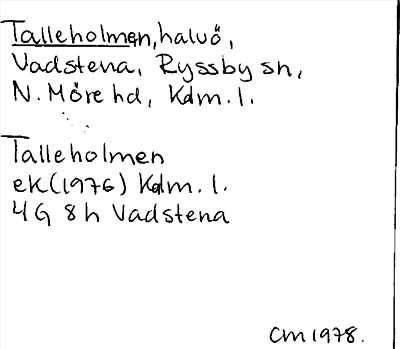 Talleholmen, halvö,
Vadstena, Ryssby sn,
N. Möre hd, Kdm. l.
Talleholmen
ek (1976) Kdm. l.
4G 8h Vadstena
CM 1978.